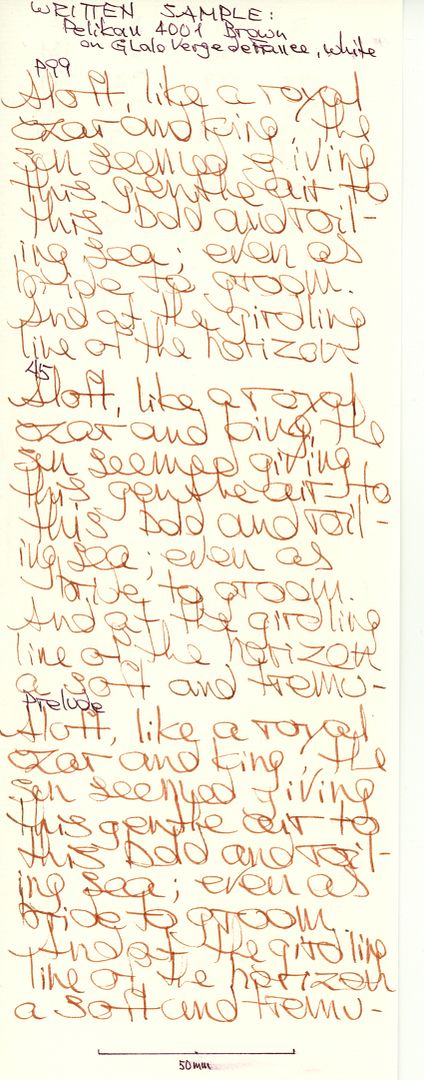 WRITTEN SAMPLE:
Pelikan 4001 Brown
on G Lalo Verge de France, white
P99
Aloft, like a royal
czar and king, the
sun seemed giving
this gentle air to
this bold and roll-
ing sea; even as
bride to groom.
And at the girdling
line of the horizon
45
Aloft, like a royal
czar and king, the
sun seemed giving
this gentle air to
this bold and roll-
ing sea; even as
bride to groom.
And at the girdling
line of the horizon
a soft and tremu-
Prelude
Aloft, like a royal
czar and king, the
sun seemed giving
this gentle air to
this bold and roll-
ing sea; even as
bride to groom.
And at the girdling
line of the horizon
a soft and tremu-
50mm